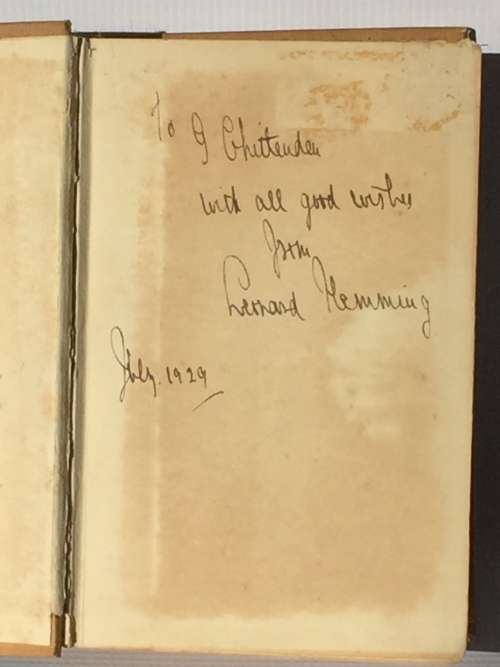 To G Chittenden
with all good wishes
from
Leonard Flemming
July. 1929